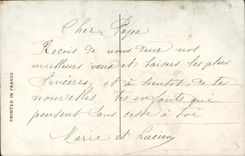 Cher Papa
Recois de nous deux nos
meilleurs vœux et baisers les plus
sincères, et à bientot de tes
nouvelles tes enfants qui
pensent sans cesse à toi
Marie et Lucien
PRINTED IN FRANCE